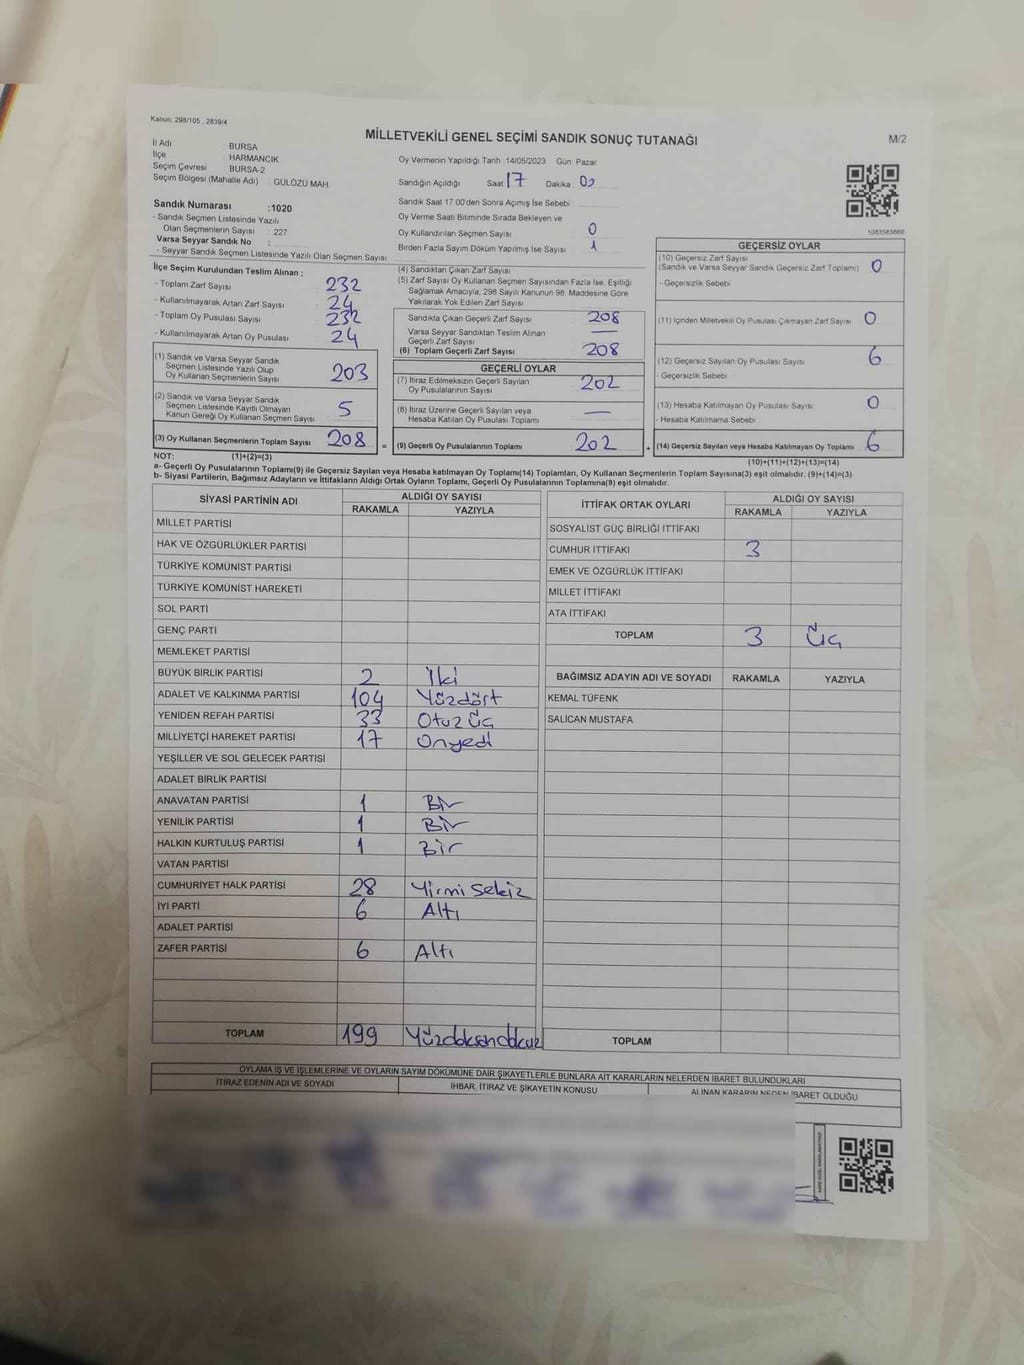 Kanun: 298/105 , 2839/4
MİLLETVEKİLİ GENEL SEÇİMİ SANDIK SONUÇ TUTANAĞI
M/2
İl Adı BURSA
İlçe HARMANCIK
Seçim Çevresi BURSA-2
Seçim Bölgesi (Mahalle Adı) : GÜLÖZÜ MAH.
Oy Vermenin Yapıldığı Tarih 14/05/2023 Gün Pazar
Sandığın Açıldığı Saat 17 Dakika 02
Sandık Saat 17:00'den Sonra Açımış İse Sebebi
Oy Verme Saati Bitiminde Sırada Bekleyen ve
Oy Kullandırılan Seçmen Sayısı 0
Birden Fazla Sayım Döküm Yapılmış İse Sayısı 1
Sandık Numarası :1020
- Sandık Seçmen Listesinde Yazılı
Olan Seçmenlerin Sayısı : 227
Varsa Seyyar Sandık No :
- Seyyar Sandık Seçmen Listesinde Yazılı Olan Seçmen Sayısı
1083565666
İlçe Seçim Kurulundan Teslim Alınan ;
- Toplam Zarf Sayısı 232
- Kullanılmayarak Artan Zarf Sayısı 24
- Toplam Oy Pusulası Sayısı 232
- Kullanılmayarak Artan Oy Pusulası 24
(1) Sandık ve Varsa Seyyar Sandık
Seçmen Listesinde Yazılı Olup
Oy Kullanan Seçmenlerin Sayısı 203
(2) Sandık ve Varsa Seyyar Sandık
Seçmen Listesinde Kayıtlı Olmayan
Kanun Gereği Oy Kullanan Seçmen Sayısı 5
(3) Oy Kullanan Seçmenlerin Toplam Sayısı 208 =
(4) Sandıktan Çıkan Zarf Sayısı
(5) Zarf Sayısı Oy Kullanan Seçmen Sayısından Fazla İse, Eşitliği
Sağlamak Amacıyla, 298 Sayılı Kanunun 98. Maddesine Göre
Yakılarak Yok Edilen Zarf Sayısı
Sandıkta Çıkan Geçerli Zarf Sayısı 208
Varsa Seyyar Sandıktan Teslim Alınan
Geçerli Zarf Sayısı —
(6) Toplam Geçerli Zarf Sayısı 208
GEÇERLİ OYLAR
(7) İtiraz Edilmeksizin Geçerli Sayılan
Oy Pusulalarının Sayısı 202
(8) İtiraz Üzerine Geçerli Sayılan veya
Hesaba Katılan Oy Pusulaları Toplamı —
(9) Geçerli Oy Pusulalarının Toplamı 202 +
GEÇERSİZ OYLAR
(10) Geçersiz Zarf Sayısı
(Sandık ve Varsa Seyyar Sandık Geçersiz Zarf Toplamı) 0
- Geçersizlik Sebebi
(11) İçinden Milletvekili Oy Pusulası Çıkmayan Zarf Sayısı 0
(12) Geçersiz Sayılan Oy Pusulası Sayısı 6
- Geçersizlik Sebebi
(13) Hesaba Katılmayan Oy Pusulası Sayısı 0
- Hesaba Katılmama Sebebi
(14) Geçersiz Sayılan veya Hesaba Katılmayan Oy Toplamı 6
NOT: (1)+(2)=(3)
(10)+(11)+(12)+(13)=(14)
a- Geçerli Oy Pusulalarının Toplamı(9) ile Geçersiz Sayılan veya Hesaba katılmayan Oy Toplamı(14) Toplamları, Oy Kullanan Seçmenlerin Toplam Sayısına(3) eşit olmalıdır. (9)+(14)=(3)
b- Siyasi Partilerin, Bağımsız Adayların ve İttifakların Aldığı Ortak Oyların Toplamı, Geçerli Oy Pusulalarının Toplamına(9) eşit olmalıdır.
SİYASİ PARTİNİN ADI ALDIĞI OY SAYISI
RAKAMLA YAZIYLA
MİLLET PARTİSİ
HAK VE ÖZGÜRLÜKLER PARTİSİ
TÜRKİYE KOMÜNİST PARTİSİ
TÜRKİYE KOMÜNİST HAREKETİ
SOL PARTİ
GENÇ PARTİ
MEMLEKET PARTİSİ
BÜYÜK BİRLİK PARTİSİ 2 İki
ADALET VE KALKINMA PARTİSİ 104 Yüzdört
YENİDEN REFAH PARTİSİ 33 Otuz üç
MİLLİYETÇİ HAREKET PARTİSİ 17 Onyedi
YEŞİLLER VE SOL GELECEK PARTİSİ
ADALET BİRLİK PARTİSİ
ANAVATAN PARTİSİ 1 Bir
YENİLİK PARTİSİ 1 Bir
HALKIN KURTULUŞ PARTİSİ 1 Bir
VATAN PARTİSİ
CUMHURİYET HALK PARTİSİ 28 Yirmi sekiz
İYİ PARTİ 6 Altı
ADALET PARTİSİ
ZAFER PARTİSİ 6 Altı
TOPLAM 199 Yüzdoksandokuz
İTTİFAK ORTAK OYLARI ALDIĞI OY SAYISI
RAKAMLA YAZIYLA
SOSYALİST GÜÇ BİRLİĞİ İTTİFAKI
CUMHUR İTTİFAKI 3
EMEK VE ÖZGÜRLÜK İTTİFAKI
MİLLET İTTİFAKI
ATA İTTİFAKI
TOPLAM 3 Üç
BAĞIMSIZ ADAYIN ADI VE SOYADI RAKAMLA YAZIYLA
KEMAL TÜFENK
SALİCAN MUSTAFA
TOPLAM
OYLAMA İŞ VE İŞLEMLERİNE VE OYLARIN SAYIM DÖKÜMÜNE DAİR ŞİKAYETLERLE BUNLARA AİT KARARLARIN NELERDEN İBARET BULUNDUKLARI
İTİRAZ EDENİN ADI VE SOYADI İHBAR, İTİRAZ VE ŞİKAYETİN KONUSU ALINAN KARARIN NEDEN İBARET OLDUĞU